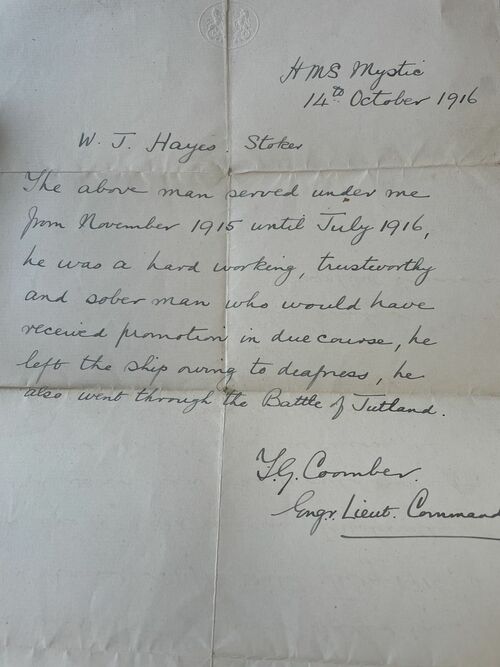 HMS Mystic
14th October 1916
W. J. Hayes. Stoker
The above man served under me
from November 1915 until July 1916,
he was a hard working, trustworthy
and sober man who would have
received promotion in due course, he
left the ship owing to deafness, he
also went through the Battle of Jutland.
F.G. Coomber.
Engr. Lieut. Command